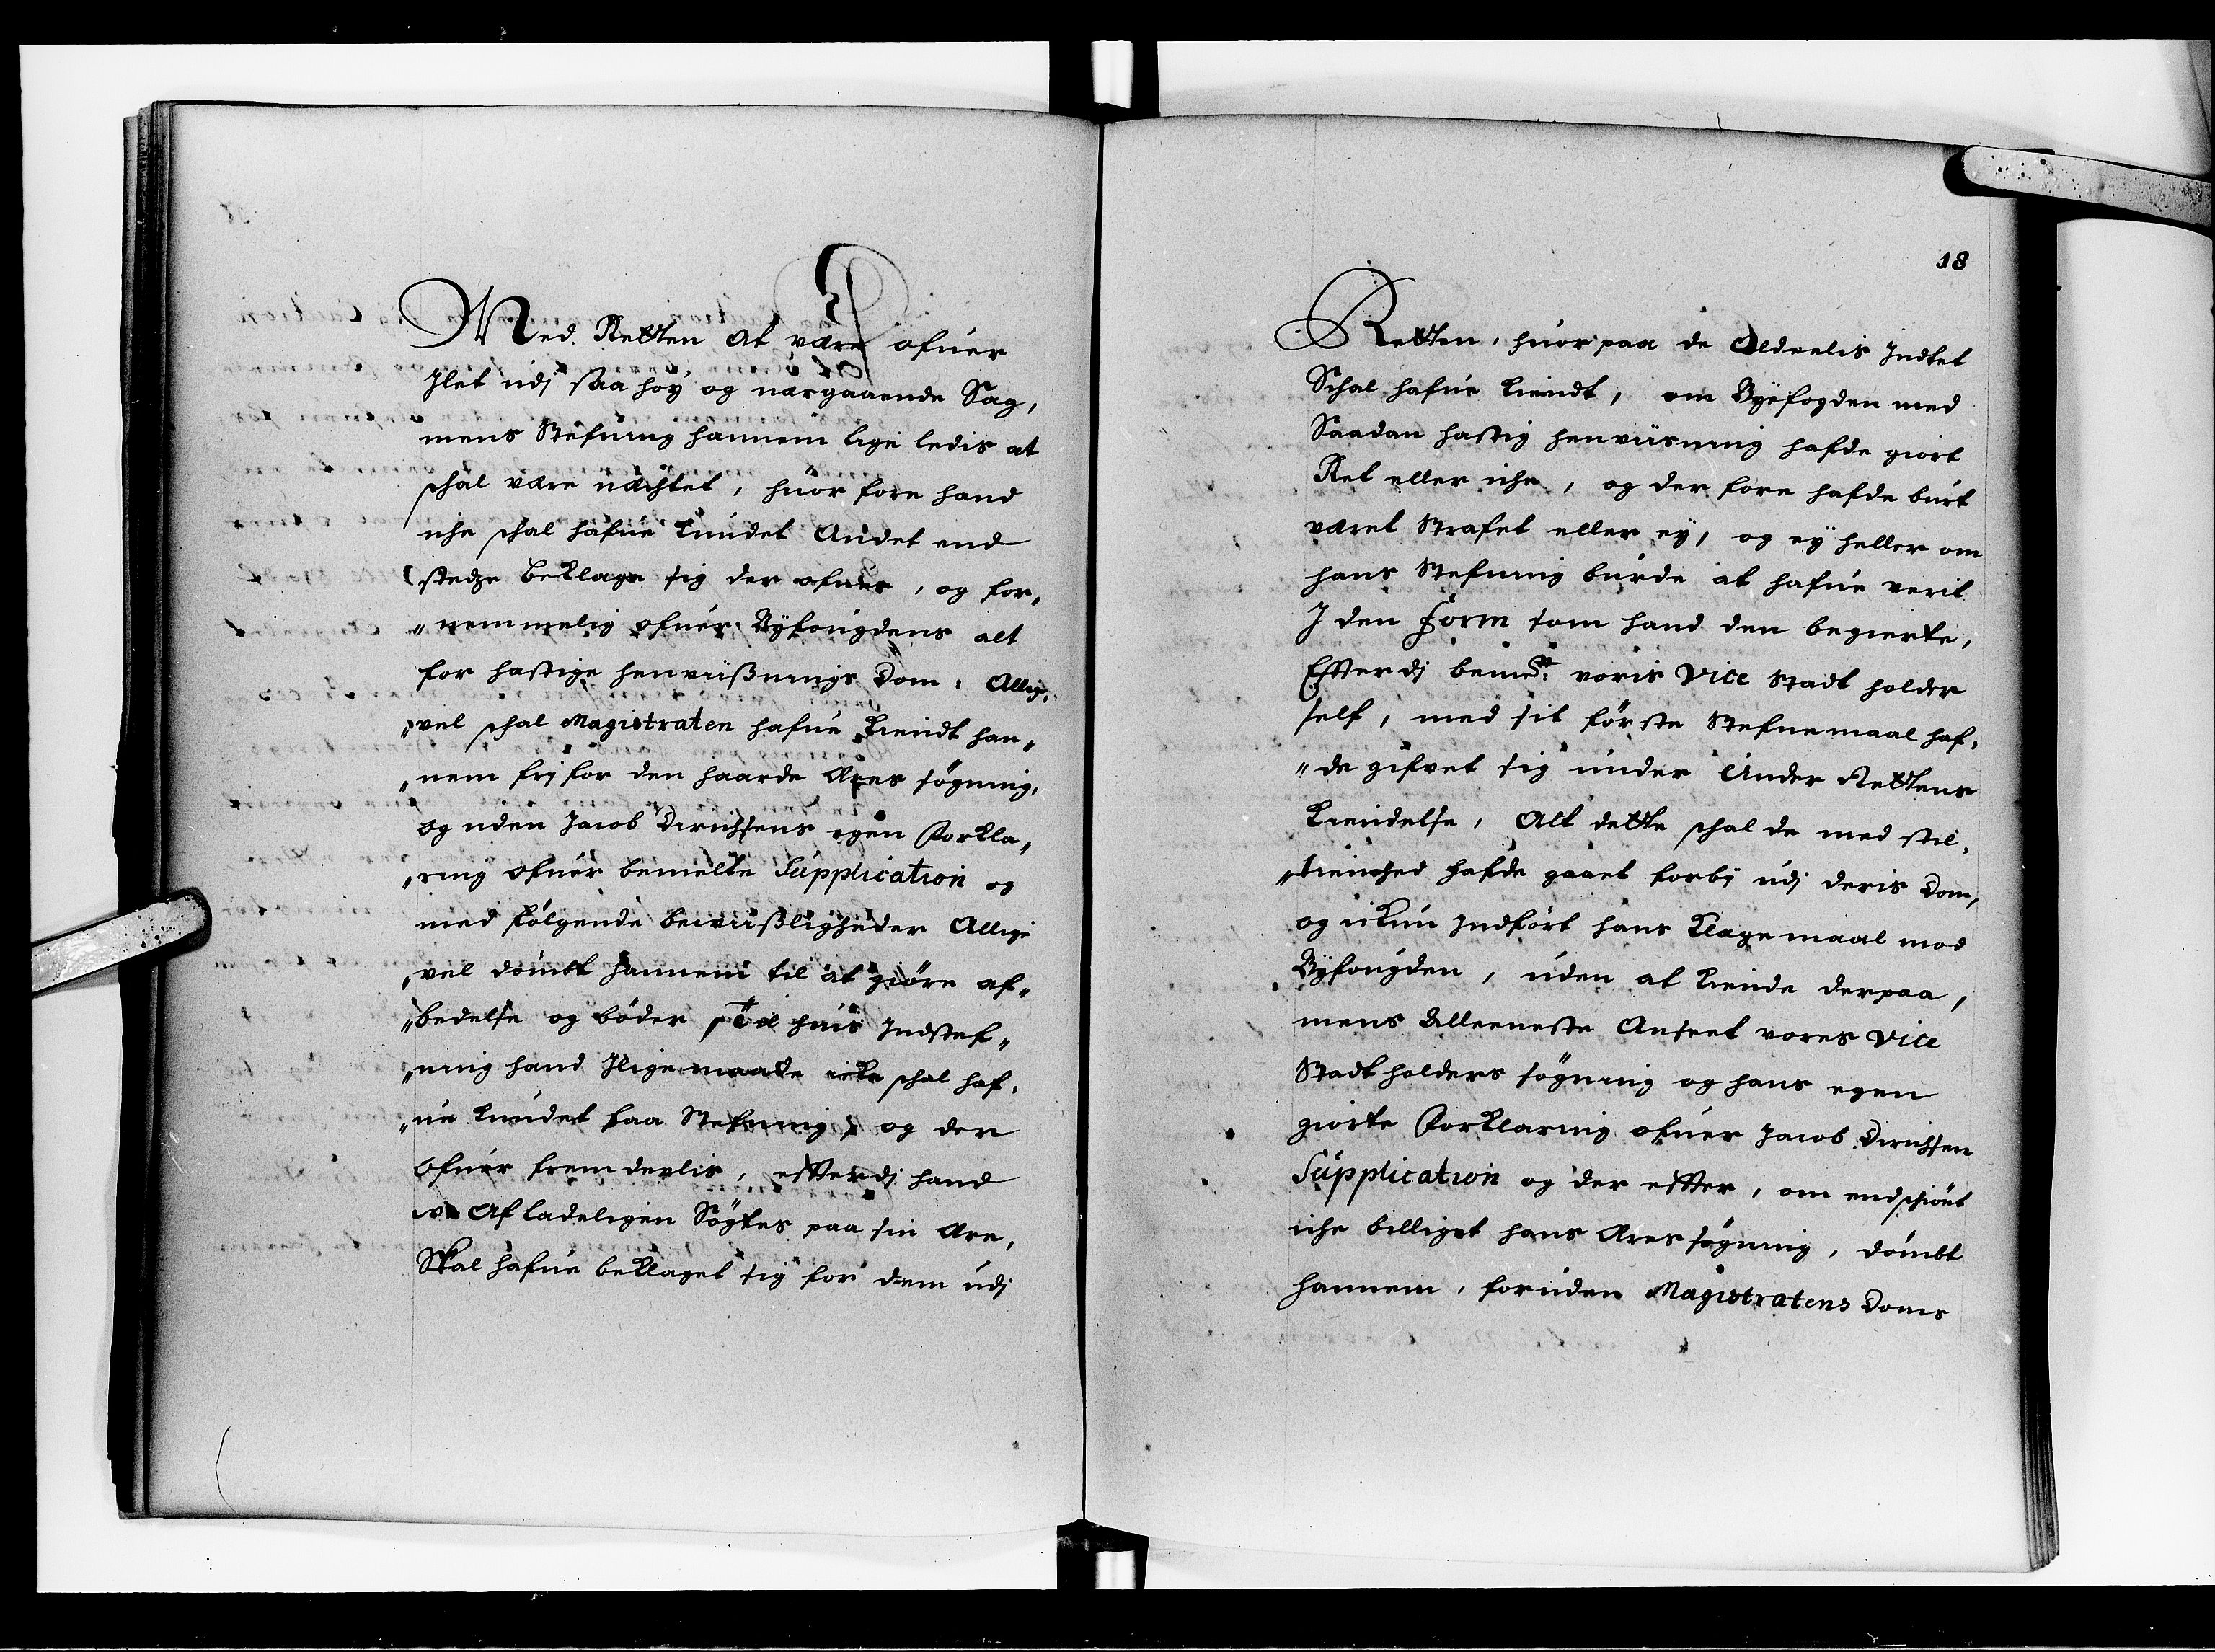 Med Retten at være ofuer
Ilet udj saa høy og nærgaaende Sag,
mens Stefning hannem lige ledis at
schal være nægtet, huor fore hand
iche schal hafue kundet Andet end
stedze beklage sig der ofuer, og for„
„nemmelig ofuer Byfougdens alt
for hastige henviißnings Dom, Allige„
„vel schal Magistraten hafue kiendt han„
„nem frj for den haarde Æres søgning,
og uden Jacob Dirichsens egen Forkla„
„ring ofuer bemelte Supplication og
med følgende beviißligheder Allige
„vel dömbt hannem til at giöre af„
„bedelse og böder, Til huis Indstef„
„ning hand Jligemaade icke schal haf„
„ue kundet faa Stefning, og der
ofuer fremdeelis, effterdj hand
Afladeligen Sögtes paa sin Ære,
Skal hafue beklaget sig for dem udj
18
Retten, huorpaa de Aldeelis Indtet
Schal hafue kiendt, om Byefogden med
Saadan hastig henviisning hafde giort
Ret eller iche, og der fore hafde burt
været Straffet eller ey, og ey heller om
hans Stefning burde at hafue verit
J den Form som hand den begierte,
Effterdj bemte: voris Vice Stadt holder
self, med sit förste Stefnemaal haf„
„de gifvet sig under Under Rettens
kiendelse, Alt dette schal de med stil„
„tienhed hafde gaaet forbj udj deris Dom,
og ickun Indfört hans Klagemaal mod
Byfougden, uden at kiende derpaa,
mens Alleeneste Anseet vores Vice
Stadtholders sögning og hans egen
giorte Forklaring ofuer Jacob Dirichsen
Supplication og der effter, om endschiönt
iche billiget hans Æres sögning, dömbt
hannem, foruden Magistratens Doms